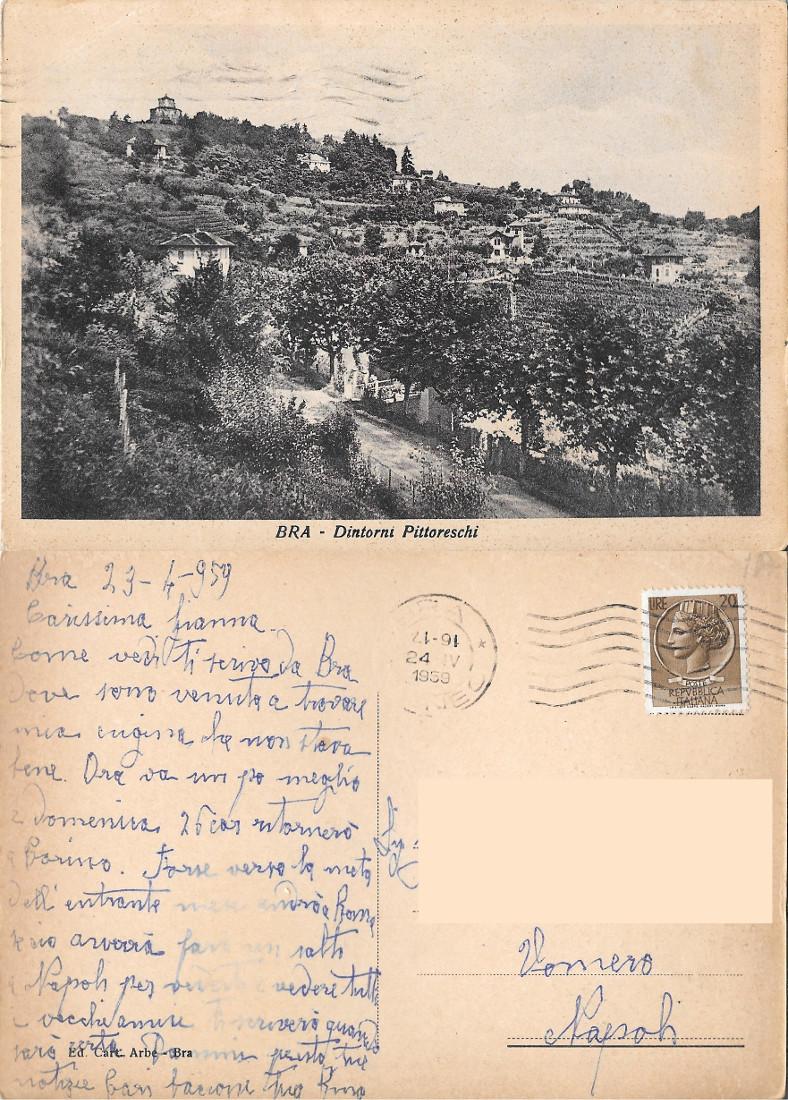 BRA - Dintorni Pittoreschi
Bra 23-4-959
Carissima Gianna
Come vedi ti scrivo da Bra
dove sono venuta a trovare
mia cugina che non stava
bene. Ora va un po meglio
e domenica 26 cor ritornerò
a Torino. Forse verso la metà
dell'entrante mese andrò a Roma
e ciò avverrà farò un salto
a Napoli per vederti e vedere tutti
e vecchie amiche ti scriverò quando
sarò certa. Dammi presto tue
notizie Cari bacioni tuo
Ed. Cart. Arbe - Bra
21-91
24 IV
1959
CUNEO
LIRE 20
POSTE
REPVBBLICA
ITALIANA
Vomero
Napoli